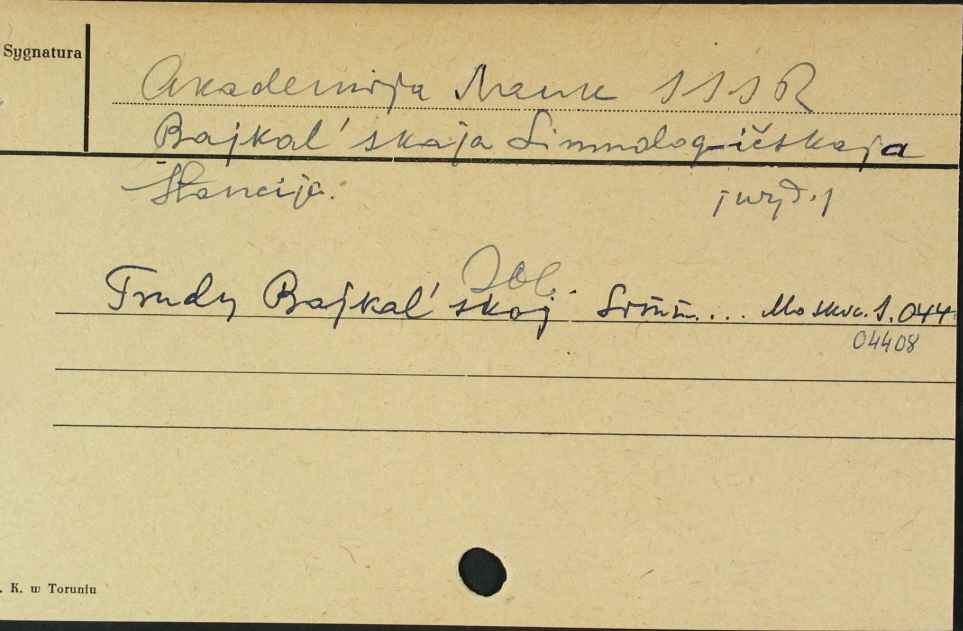 Sygnatura
Akademija Nauk SSSR
Bajkal'skaja Limnologičeskaja
Stancija.
Zob.
Trudy Bajkal'skoj Limn.... Moskva. S.044
04408
. K. w Toruniu